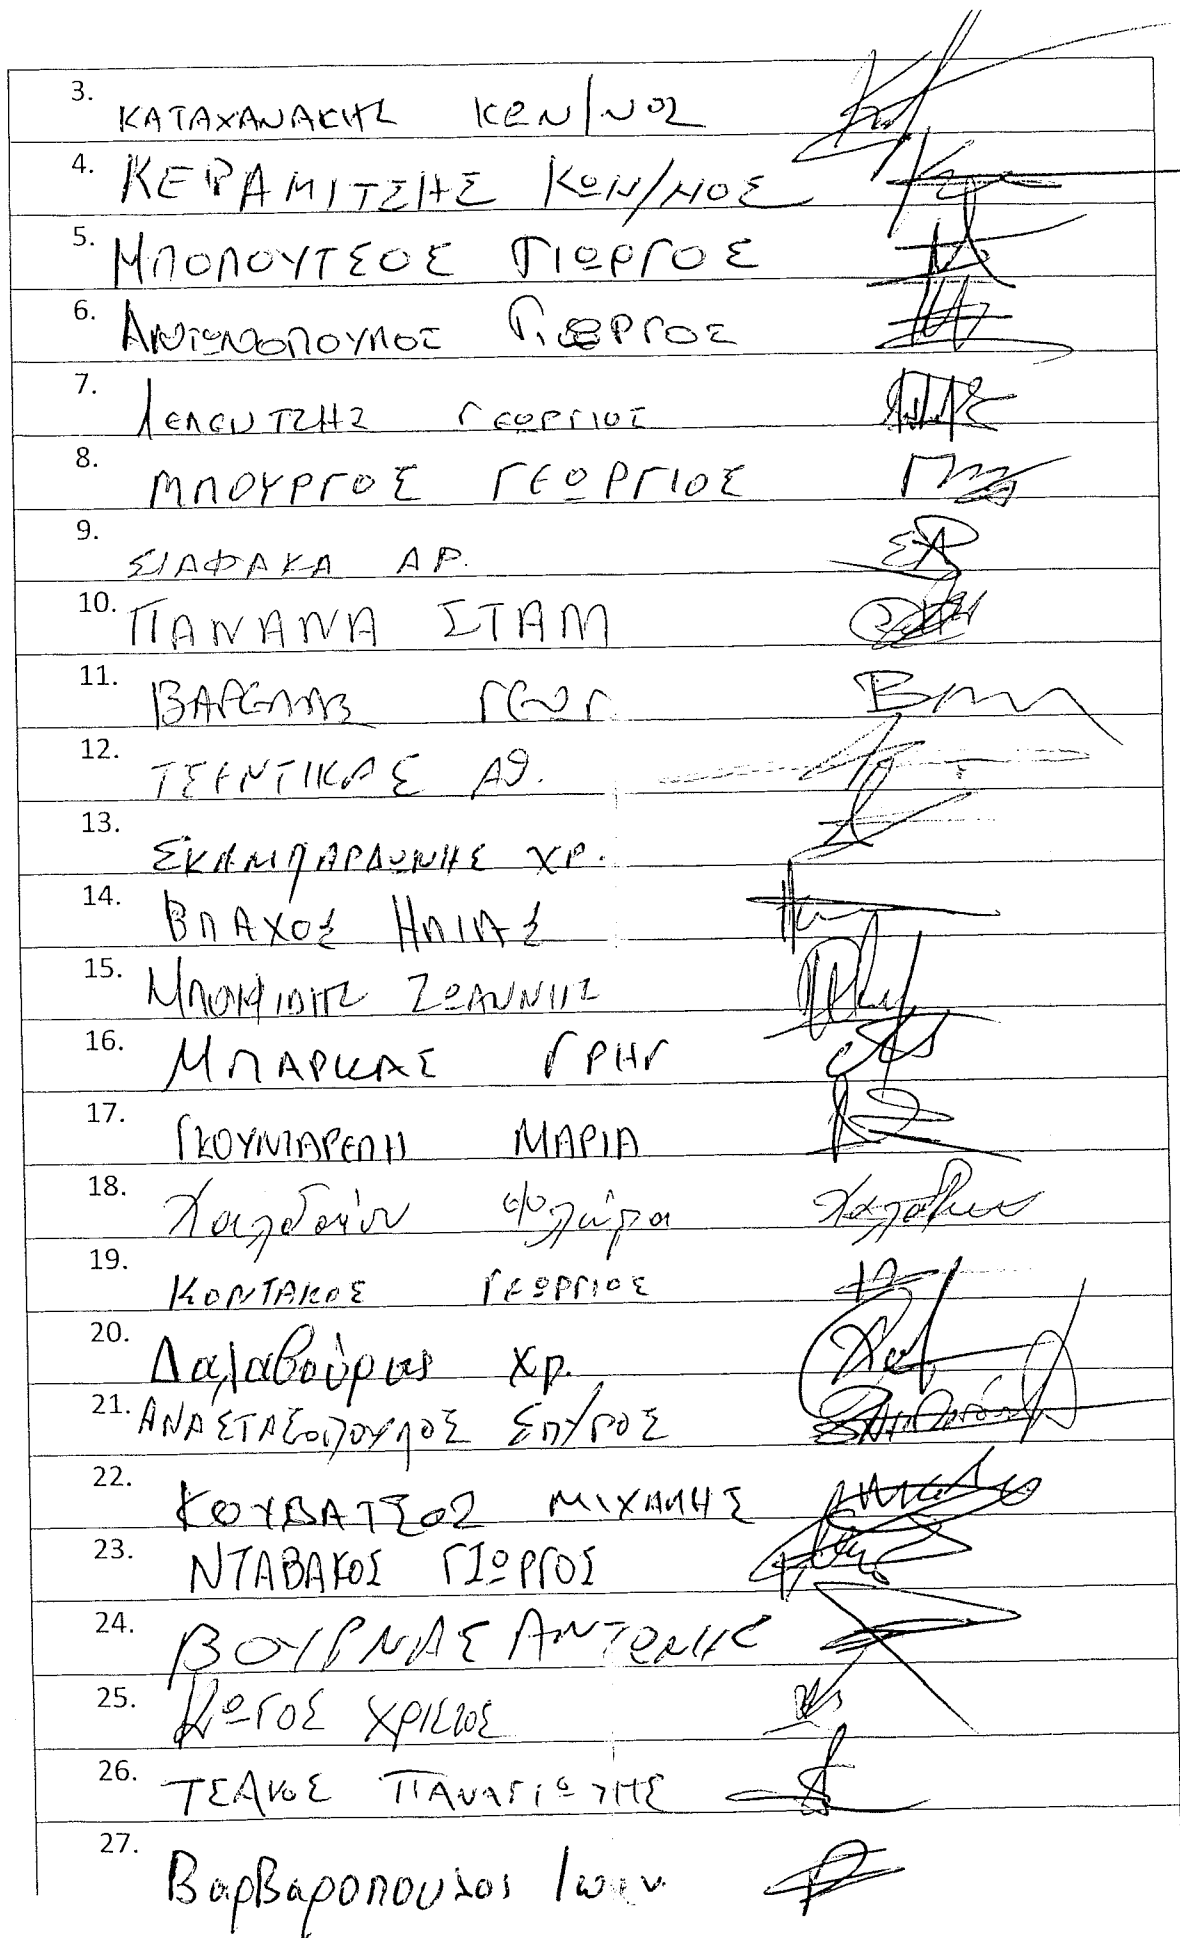 3. ΚΑΤΑΧΑΝΑΚΗΣ ΚΩΝ/ΝΟΣ
4. ΚΕΡΑΜΙΤΣΗΣ ΚΩΝ/ΝΟΣ
5. ΜΠΟΛΟΥΤΣΟΣ ΓΙΩΡΓΟΣ
6. ΑΝΤΩΝΟΠΟΥΛΟΣ ΓΙΩΡΓΟΣ
7. ΛΕΛΕΝΤΖΗΣ ΓΕΩΡΓΙΟΣ
8. ΜΠΟΥΡΓΟΣ ΓΕΩΡΓΙΟΣ
9. ΣΙΑΦΑΚΑ ΑΡ.
10. ΠΑΝΑΝΑ ΣΤΑΜ
11. ΓΕΩΡΓ.
12. ΤΣΕΝΤΙΚΑΣ ΑΘ.
13. ΣΚΑΜΠΑΡΔΩΝΗΣ ΧΡ.
14. ΒΛΑΧΟΣ ΗΛΙΑΣ
15. ΙΩΑΝΝΗΣ
16. ΜΠΑΡΚΑΣ ΓΡΗΓ
17. ΓΚΟΥΝΤΑΡΕΛΗ ΜΑΡΙΑ
18. Φλώρα
19. ΚΟΝΤΑΚΟΣ ΓΕΩΡΓΙΟΣ
20. Χρ.
21. ΑΝΑΣΤΑΣΟΠΟΥΛΟΣ ΣΠΥΡΟΣ
22. ΚΟΥΒΑΤΣΟΣ ΜΙΧΑΛΗΣ
23. ΝΤΑΒΑΚΟΣ ΓΙΩΡΓΟΣ
24. ΒΟΥΡΝΑΣ ΑΝΤΩΝΗΣ
25. ΚΩΓΟΣ ΧΡΙΣΤΟΣ
26. ΤΣΑΚΟΣ ΠΑΝΑΓΙΩΤΗΣ
27. Βαρβαροπουλος Ιωαν.